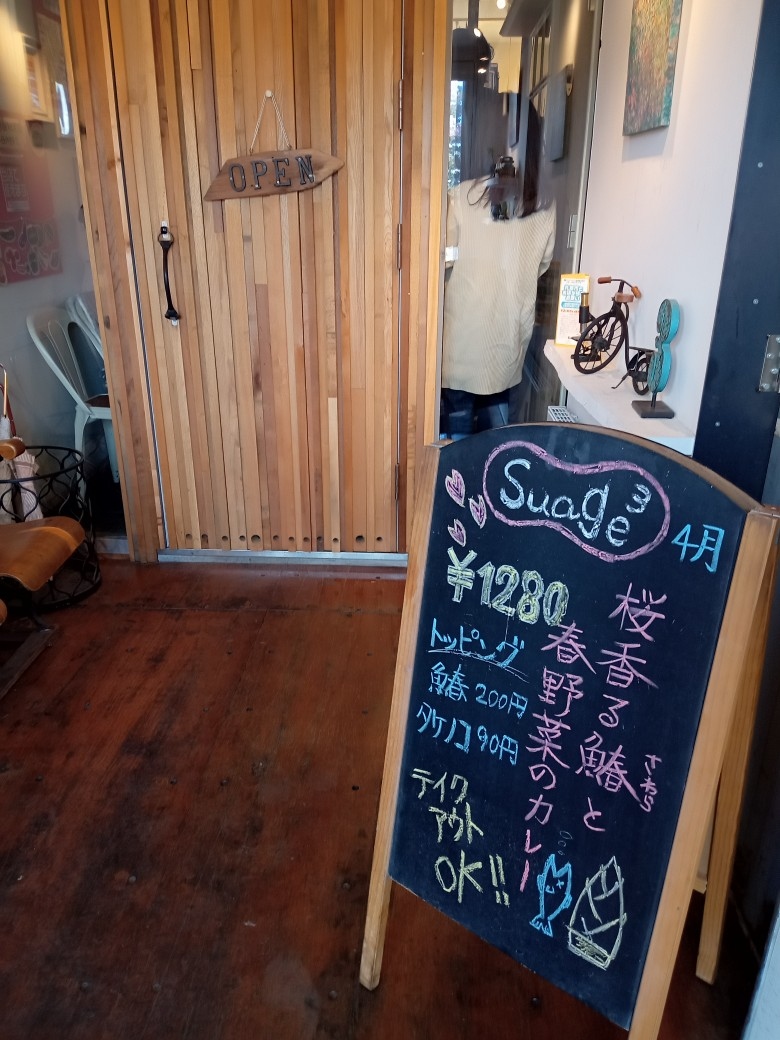 OPEN
Suage3
4月
桜香る鰆と
さわら
春野菜のカレー
¥1280
トッピング
鰆 200円
タケノコ 90円
テイク
アウト
OK!!